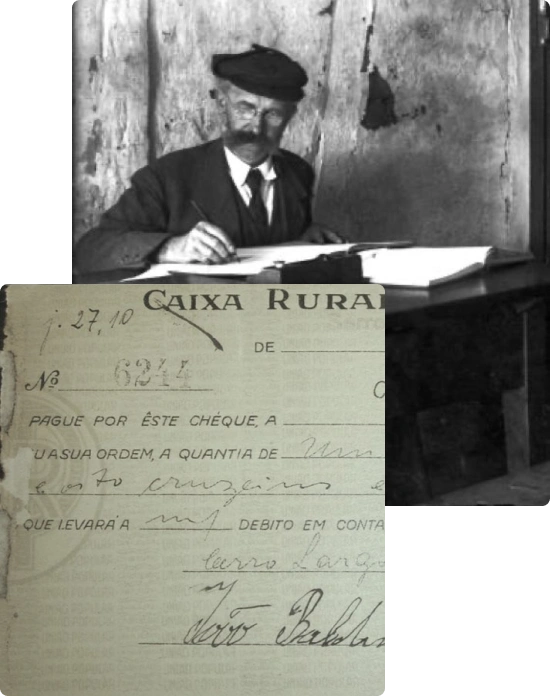 j. 27,10
CAIXA RURAL
DE
Nº 6244
PAGUE POR ÊSTE CHÉQUE, A
UASUA ORDEM, A QUANTIA DE Um
e oito cruzeiros e
QUE LEVARÁ A m/ DEBITO EM CONTA
Cerro Largo
João